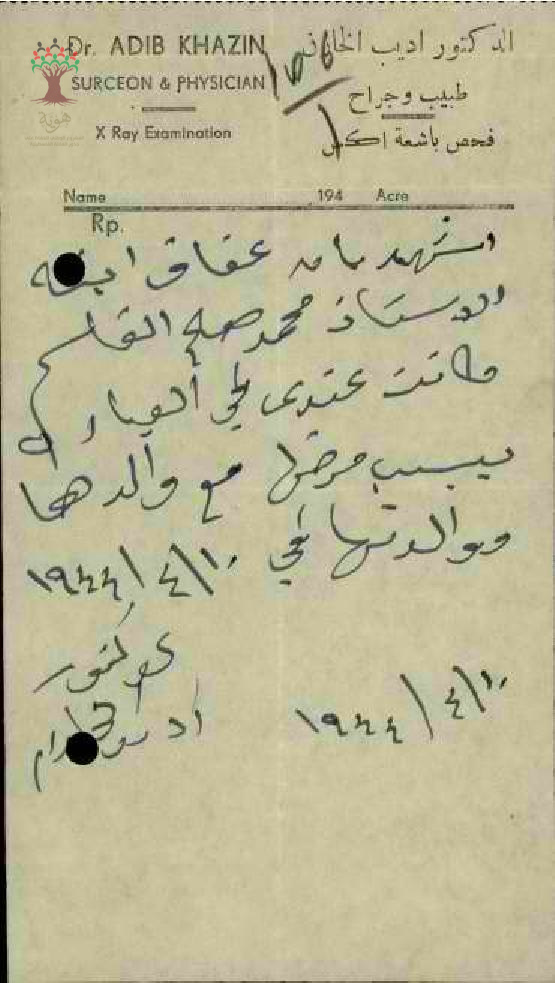 Dr. ADIB KHAZIN
SURGEON & PHYSICIAN
X Ray Examination
الدكتور اديب الخازن
طبيب وجراح
فحص باشعة اكس
هوية
Name 194 Acre
Rp.
اشهد بان عفاف ابنة
الاستاذ محمد صلح القاسم
كانت عندى في العيادة
بسبب مرضها مع والدها
ووالدتها في ١٠/٤/١٩٤٤
دكتور
١٠/٤/١٩٤٤